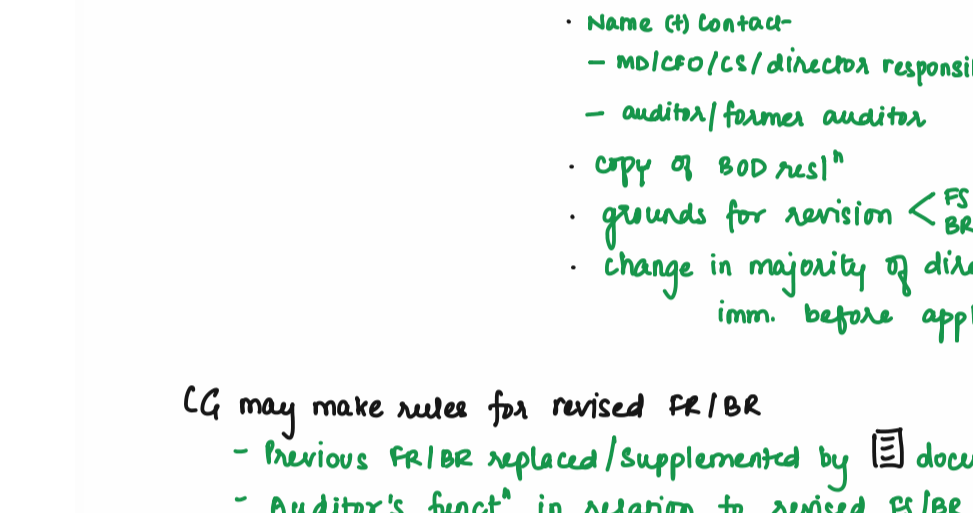 · Name (+) Contact-
- MD/CFO/CS/director responsi
- auditor/former auditor
· copy of BOD reslⁿ
· grounds for revision < FS
BR
· change in majority of dire
imm. before appl
CG may make rules for revised FR/BR
- Previous FR/BR replaced/supplemented by docu
- Auditor's functⁿ in relation to revised FS/BR